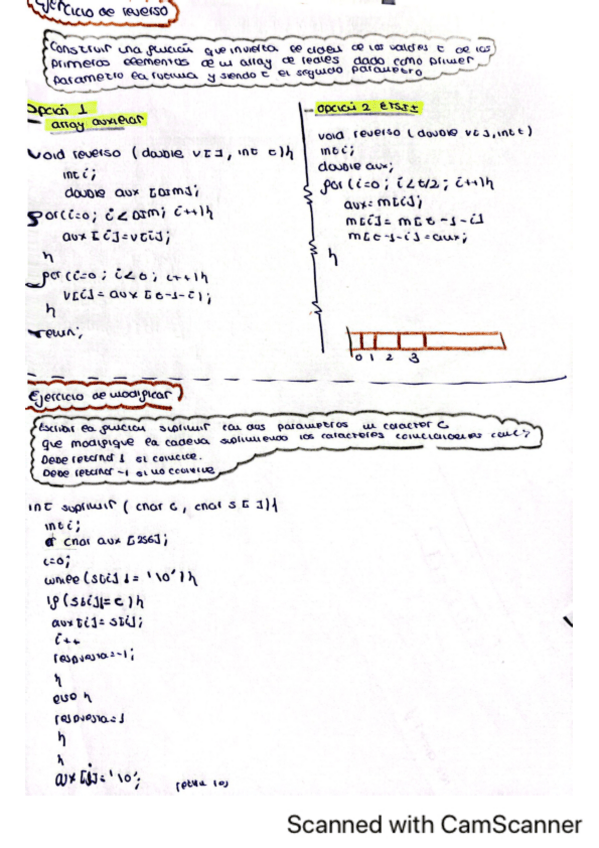 Ejercicio de reverso
Construir una función que invierta el orden de los valores t de los
primeros elementos de un array de reales dado como primer
parametro la función y siendo t el segundo parametro
Opción 1
array auxiliar
void reverso (double v[], int t){
int i;
double aux [DIM];
for(i=0; i<DIM; i++){
aux[i]=v[i];
}
for (i=0; i<t; i++){
v[i]= aux[t-1-i];
}
return;
- opción 2
void reverso (double v[], int t)
int i;
double aux;
for (i=0; i<t/2; i++){
aux= m[i];
m[i]= m[t-1-i]
m[t-1-i]=aux;
}
0 1 2 3
Ejercicio de modificar
Escribir la función suprimir con dos parametros un caracter c
que modifique la cadena suprimiendo los caracteres coincidentes con c;
Debe retornar 1 si coincide.
Debe retornar -1 si no coincide
int suprimir ( char c, char s[]){
int i;
char aux [256];
i=0;
while (s[i] != '\0'){
if (s[i]!=c){
aux[i]= s[i];
i++
respuesta=-1;
}
else {
respuesta=1
}
}
aux[j]='\0';
Scanned with CamScanner